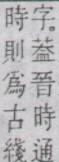 字。蓋晉時通
時則爲古綫